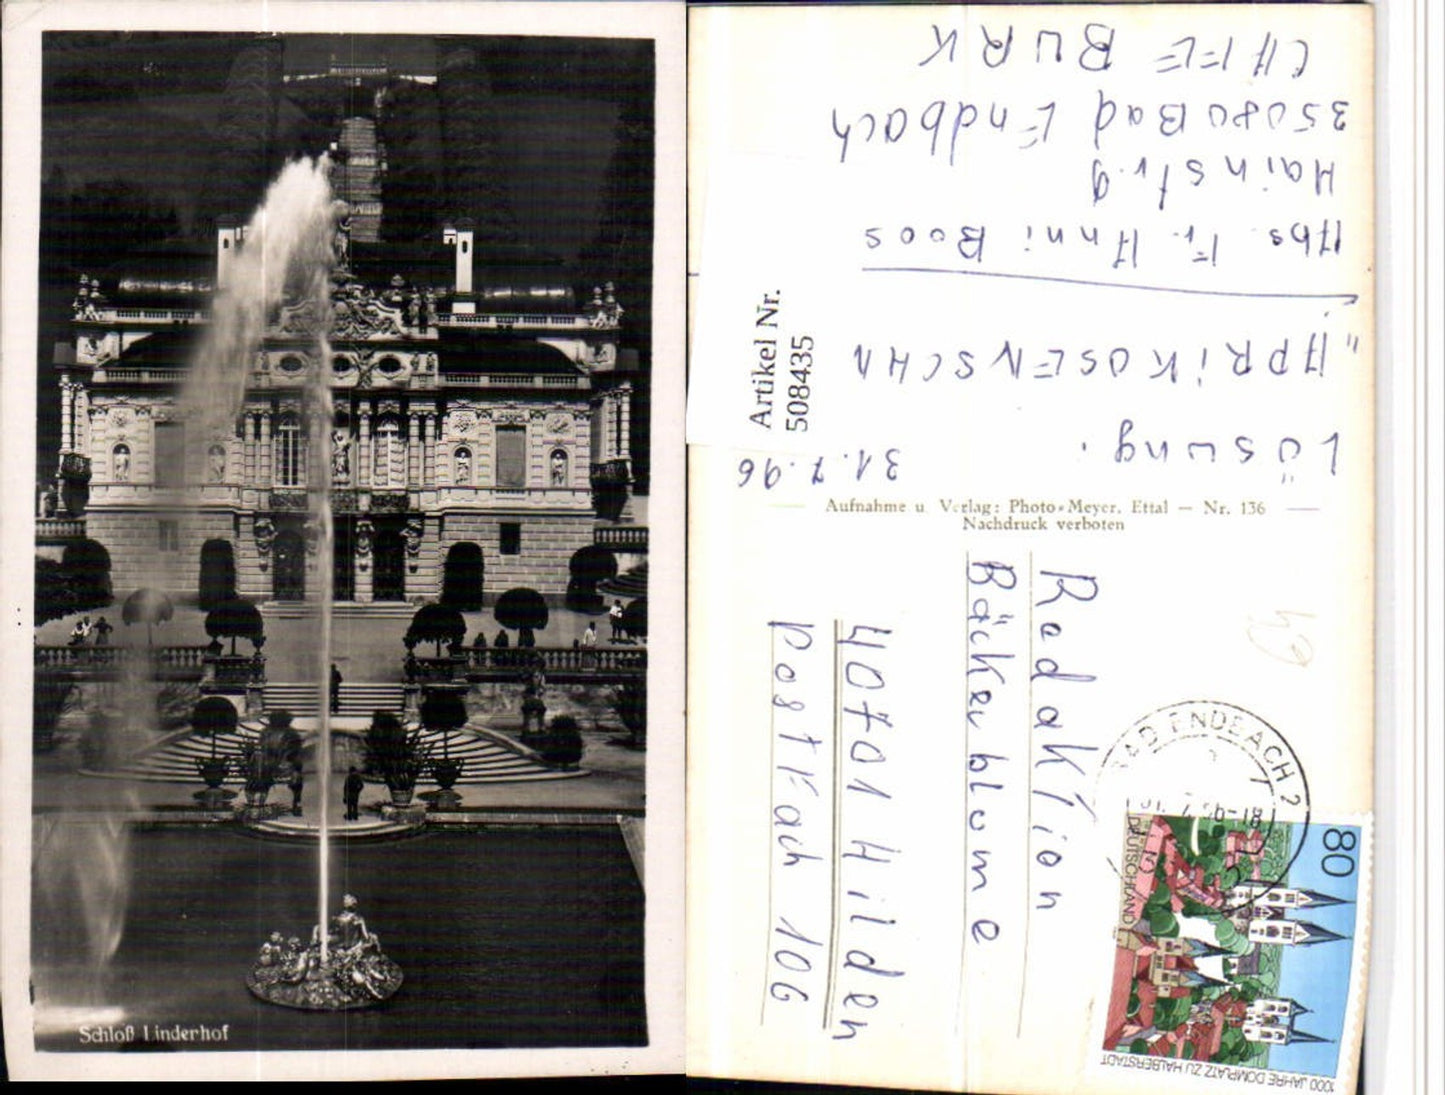 Schloß Linderhof
CAFE BURK
35080 Bad Endbach
Hainstr. 9
Abs. Fr. Anni Boos
"APRIKOSENSCHN
Lösung.
31.7.96
Artikel Nr.
508435
Aufnahme u. Verlag: Photo-Meyer, Ettal — Nr. 136
Nachdruck verboten
Redaktion
Bäckerblume
40701 Hilden
Postfach 106
BAD ENDBACH 2
80
DEUTSCHLAND
1000 JAHRE DOMPLATZ ZU HALBERSTADT